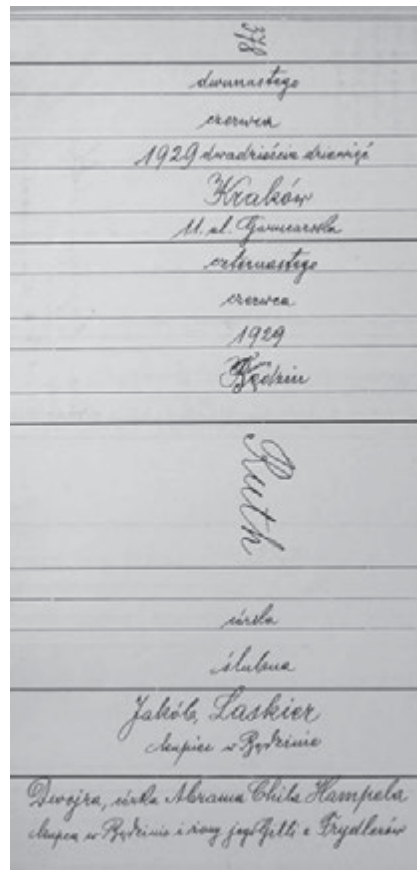 378
dwunastego
czerwca
1929 dwadzieścia dziewięć
Kraków
11. ul. Garncarska
czternastego
czerwca
1929
Będzin
Ruth
córka
ślubna
Jakób Laskier
kupiec w Będzinie
Dwojra, córka Abrama Chila Hampela
kupca w Będzinie i żony jego Gitli z Frydlerów